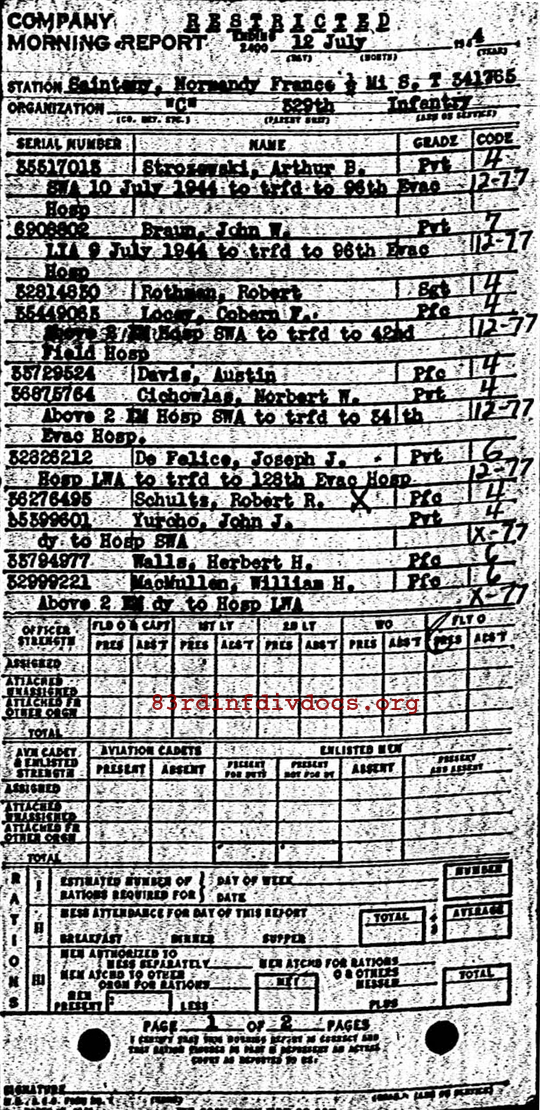 COMPANY RESTRICTED
MORNING REPORT ENDING 2400 12 July 1944
(DAY) (MONTH) (YEAR)
STATION Sainteny, Normandy France ½ Mi S. T 341765
ORGANIZATION "C" 329th Infantry
(CO. BTY. ETC.) (PARENT UNIT) (ARM OR SERVICE)
SERIAL NUMBER NAME GRADE CODE
35517013 Strozewski, Arthur B. Pvt 4
SWA 10 July 1944 to trfd to 96th Evac 12-77
Hosp
6908802 Braun, John W. Pvt 7
LIA 9 July 1944 to trfd to 96th Evac 12-77
Hosp
32814830 Rothman, Robert Sgt 4
35449063 Locey, Cobern F. Pfc 4
Above 2 EM Hosp SWA to trfd to 42nd 12-77
Field Hosp
35729524 Davis, Austin Pfc 4
36875764 Cichowlas, Norbert W. Pvt 4
Above 2 EM Hosp SWA to trfd to 34th 12-77
Evac Hosp.
32826212 De Felice, Joseph J. Pvt 6
Hosp LWA to trfd to 128th Evac Hosp 12-77
36276495 Schultz, Robert R. X Pfc 4
35399601 Yurcho, John J. Pvt 4
dy to Hosp SWA X-77
35794977 Walls, Herbert H. Pfc 6
32999221 MacMullen, William H. Pfc 6
Above 2 EM dy to Hosp LWA X-77
OFFICER STRENGTH FLD O & CAPT 1ST LT 2D LT WO FLT O
PRES ABS'T PRES ABS'T PRES ABS'T PRES ABS'T PRES ABS'T
ASSIGNED
ATTACHED UNASSIGNED
ATTACHED FR OTHER ORGN
83rdinfdivdocs.org
TOTAL
AVN CADET & ENLISTED STRENGTH AVIATION CADETS ENLISTED MEN
PRESENT ABSENT PRESENT FOR DUTY PRESENT NOT FOR DY ABSENT PRESENT AND ABSENT
ASSIGNED
ATTACHED UNASSIGNED
ATTACHED FR OTHER ORGN
TOTAL
RATIONS
I ESTIMATED NUMBER OF RATIONS REQUIRED FOR DAY OF WEEK DATE NUMBER
II MESS ATTENDANCE FOR DAY OF THIS REPORT TOTAL ÷ 3 AVERAGE
BREAKFAST DINNER SUPPER
III MEN AUTHORIZED TO MESS SEPARATELY MEN ATCHD FOR RATIONS
MEN ATCHD TO OTHER ORGN FOR RATIONS O R OTHERS MESSED TOTAL
MEN PRESENT LESS NET PLUS
PAGE 1 OF 2 PAGES
I CERTIFY THAT THIS MORNING REPORT IS CORRECT AND
SIGNATURE